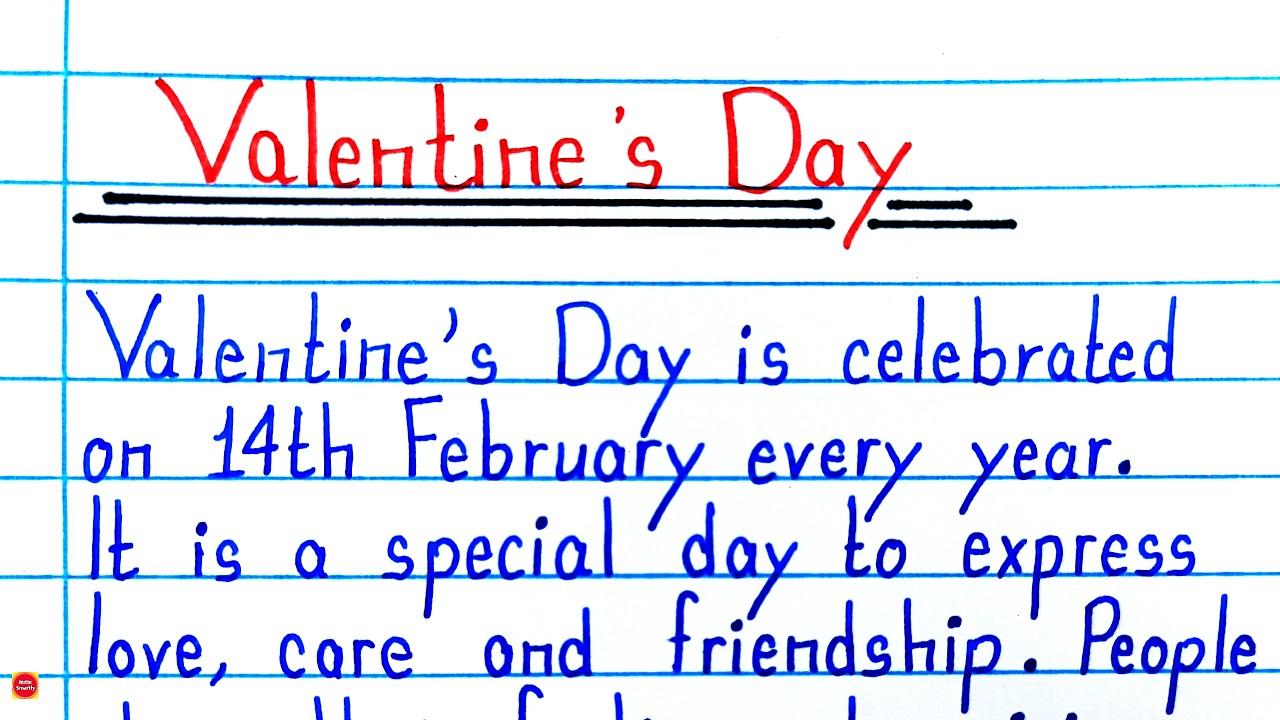 Valentine's Day
Valentine's Day is celebrated
on 14th February every year.
It is a special day to express
love, care and friendship. People
Write Smartly